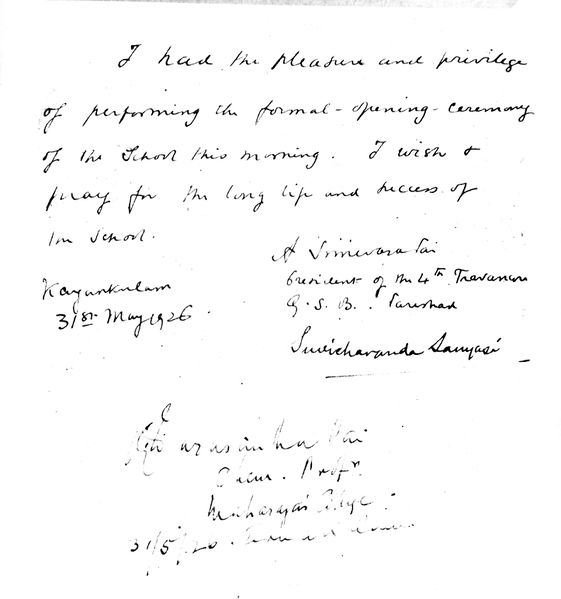 I had the pleasure and privilege
of performing the formal-opening-ceremony
of the School this morning. I wish &
pray for the long life and success of
the School.
A Srinivasa Pai
President of the 4th Travancore
G. S. B. Parishad
Kayankulam
31st May 1926
Suvicharananda Sanyasi
Narasimha Pai
Chem. Profr.
Maharaja's College
31/5/26